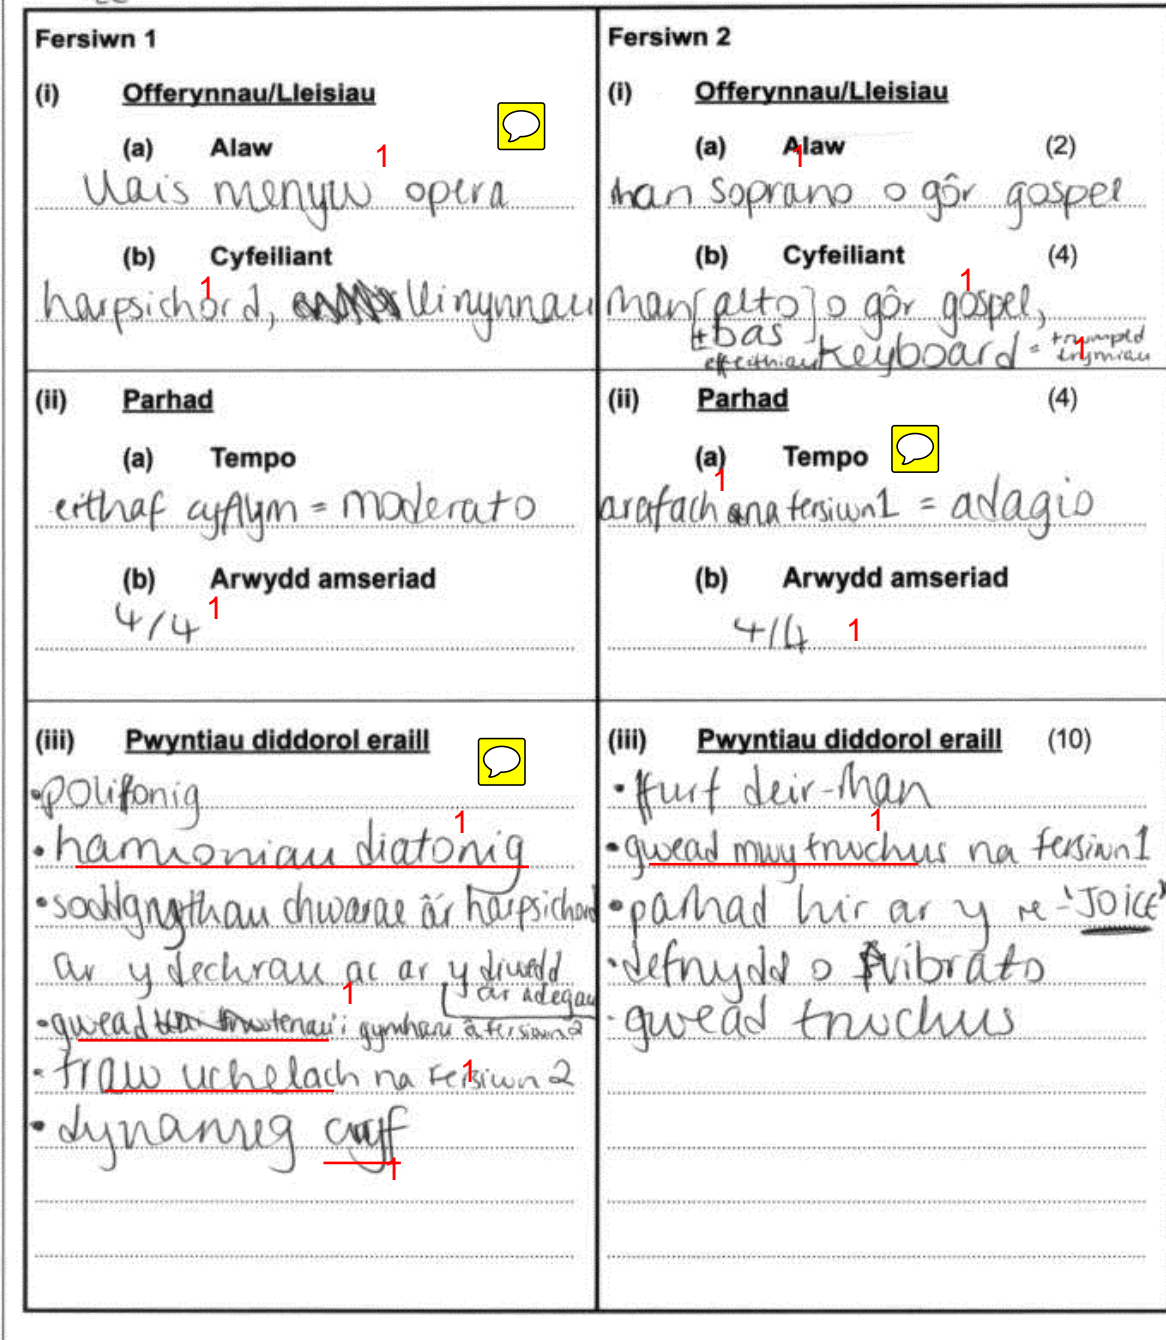 Fersiwn 1
(i) Offerynnau/Lleisiau
(a) Alaw 1
llais menyw opera
(b) Cyfeiliant
1
harpsichord, llinynnau
(ii) Parhad
(a) Tempo
eithaf cyflym = moderato
(b) Arwydd amseriad
4/4 1
(iii) Pwyntiau diddorol eraill
•polifonig
1
• harmoniau diatonig
• soddgrythau chwarae a'r harpsichord
ar y dechrau ac ar y diwedd
1 ar adegau
• gwead tenau i gymharu â fersiwn 2
• traw uchelach na Fersiwn 2 1
• dynameg cryf
1
Fersiwn 2
(i) Offerynnau/Lleisiau
(a) Alaw (2)
1
rhan soprano o gôr gospel
(b) Cyfeiliant (4)
1
rhan [alto] o gôr gospel,
+ bas
effeithiau keyboard = trwmped
drymiau 1
(ii) Parhad (4)
(a) Tempo
1
arafach na fersiwn 1 = adagio
(b) Arwydd amseriad
4/4 1
(iii) Pwyntiau diddorol eraill (10)
• ffurf deir-rhan
1
• gwead mwy trwchus na fersiwn 1
• parhad hir ar y re-'JOICE'
• defnydd o vibrato
• gwead trwchus